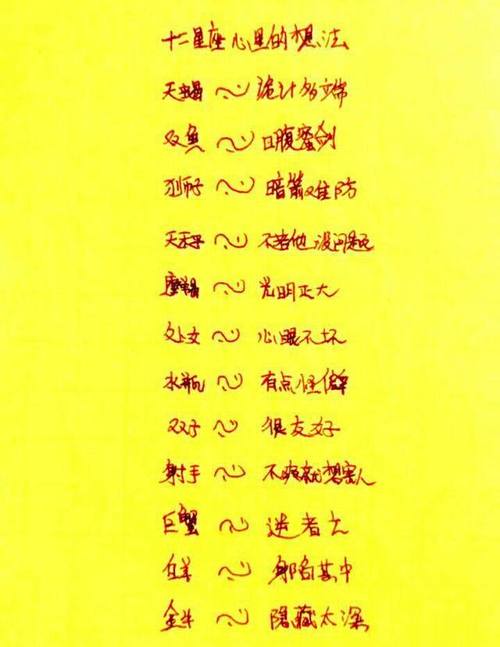 十二星座心里的想法
天蝎~诡计多端
双鱼~口腹蜜剑
狮子~暗箭难防
天秤~不惹他没问题
摩羯~光明正大
处女~心眼不坏
水瓶~有点怪僻
双子~很友好
射手~不爽就想害人
巨蟹~逆者亡
白羊~身陷其中
金牛~隐藏太深